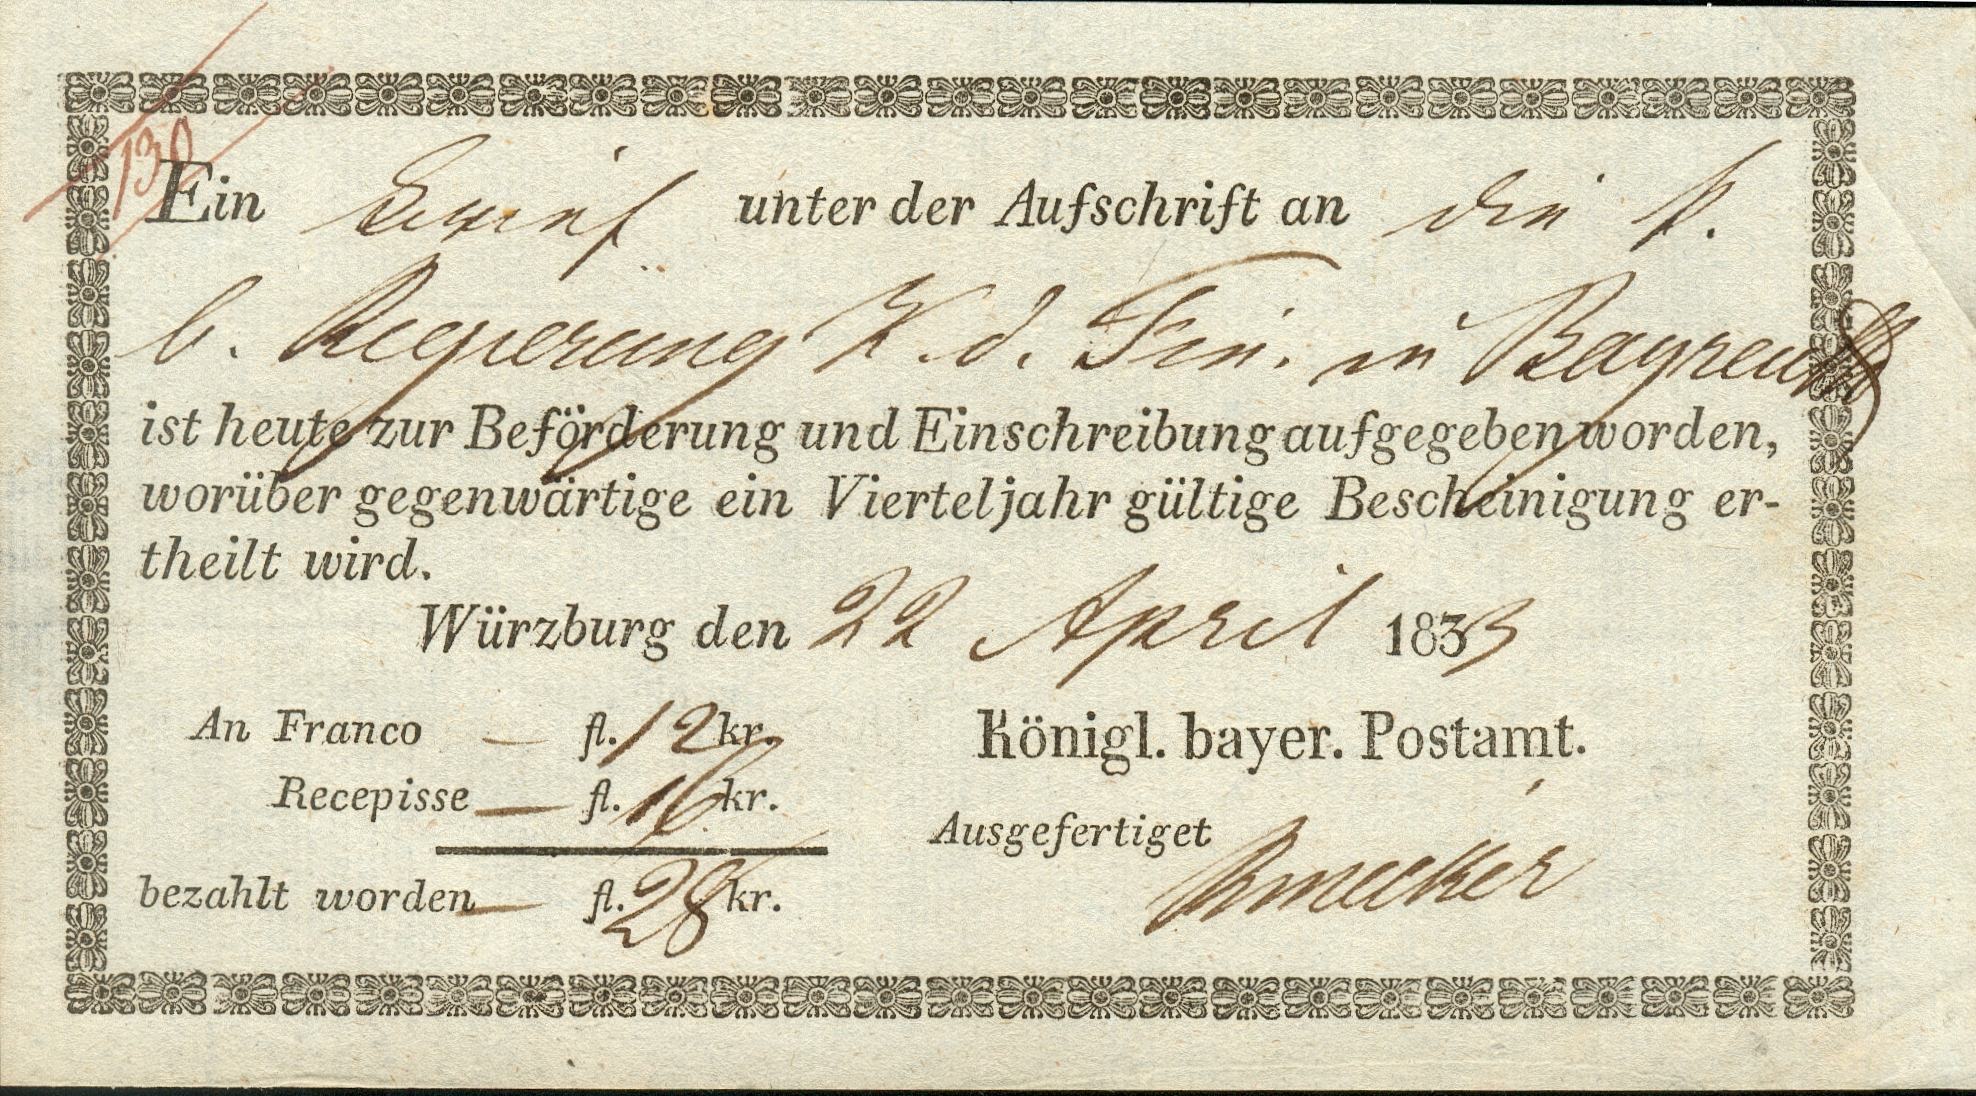 130
Ein Brief unter der Aufschrift an die k.
b. Regierung K. d. Fin. in Bayreuth
ist heute zur Beförderung und Einschreibung aufgegeben worden,
worüber gegenwärtige ein Vierteljahr gültige Bescheinigung er-
theilt wird.
Würzburg den 22 April 1833
An Franco — fl. 12 kr. Königl. bayer. Postamt.
Recepisse — fl. 16 kr.
Ausgefertiget
bezahlt worden — fl. 28 kr.